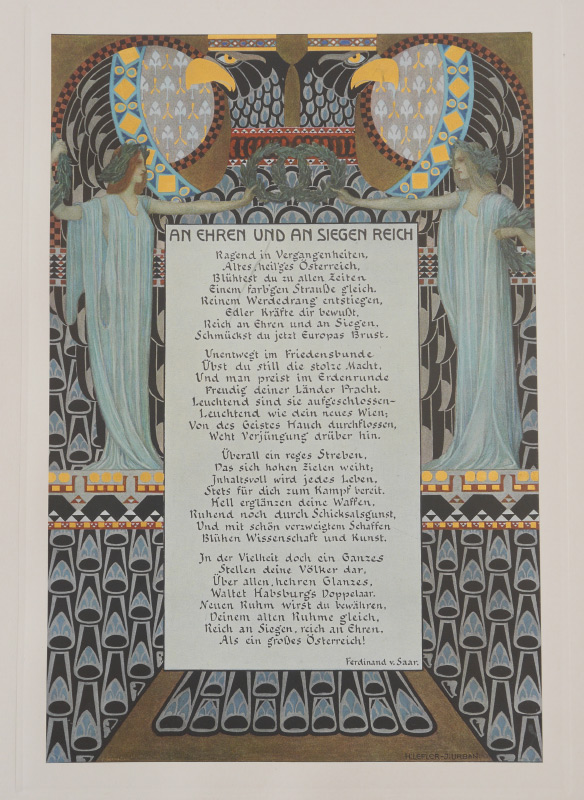 AN EHREN UND AN SIEGEN REICH
Ragend in Vergangenheiten,
Altes, heil'ges Österreich,
Blühtest du zu allen Zeiten
Einem farb'gen Strauße gleich.
Reinem Werdedrang entstiegen,
Edler Kräfte dir bewußt,
Reich an Ehren und an Siegen,
Schmückst du jetzt Europas Brust.
Unentwegt im Friedensbunde
Übst du still die stolze Macht,
Und man preist im Erdenrunde
Freudig deiner Länder Pracht.
Leuchtend sind sie aufgeschlossen-
Leuchtend wie dein neues Wien;
Von des Geistes Hauch durchflossen,
Weht Verjüngung drüber hin.
Überall ein reges Streben,
Das sich hohen Zielen weiht;
Inhaltsvoll wird jedes Leben,
Stets für dich zum Kampf bereit.
Hell erglänzen deine Waffen,
Ruhend noch durch Schicksalsgunst,
Und mit schön verzweigtem Schaffen
Blühen Wissenschaft und Kunst.
In der Vielheit doch ein Ganzes
Stellen deine Völker dar,
Über allen, hehren Glanzes,
Waltet Habsburgs Doppelaar.
Neuen Ruhm wirst du bewähren,
Deinem alten Ruhme gleich,
Reich an Siegen, reich an Ehren.
Als ein großes Österreich!
Ferdinand v. Saar.
H. LEFLER-J. URBAN